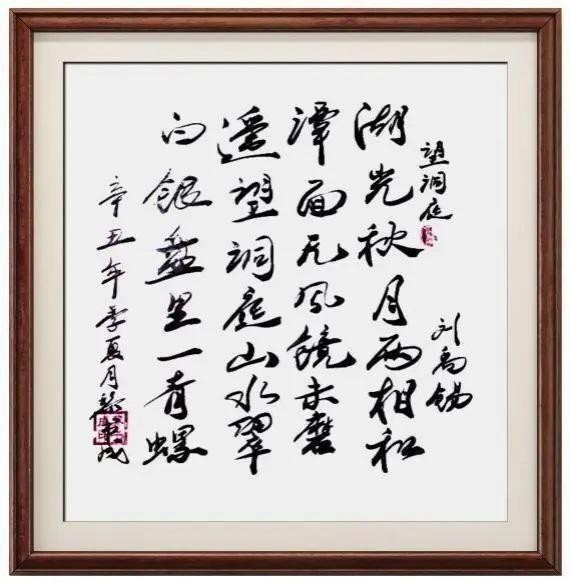 望洞庭 刘禹锡
湖光秋月两相和
潭面无风镜未磨
遥望洞庭山水翠
白银盘里一青螺
辛丑年季夏月